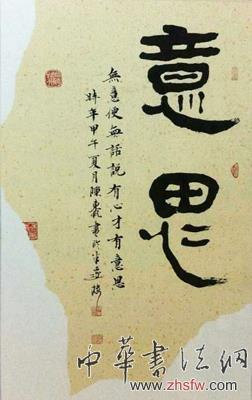 意思
無意便無話說有心才有意思
時年甲午夏月陳書於半樓
中華書法網
www.zhsfw.com